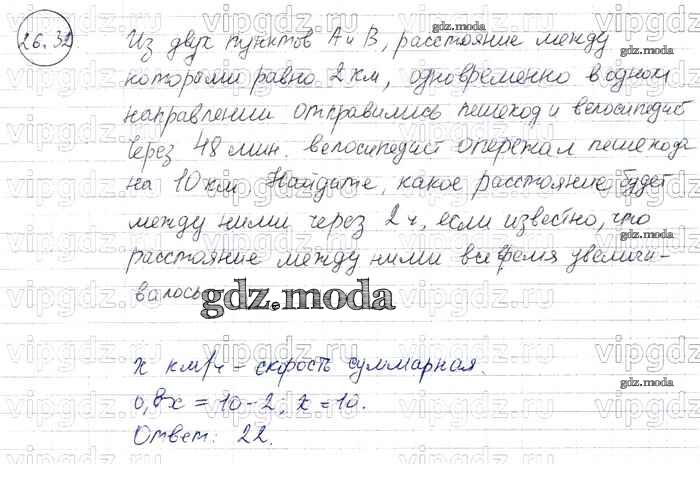 26.32
Из двух пунктов А и В, расстояние между
которыми равно 2 км, одновременно в одном
направлении отправились пешеход и велосипедист
Через 48 мин. велосипедист опережал пешехода
на 10 км. Найдите, какое расстояние будет
между ними через 2 ч, если известно, что
расстояние между ними все время увеличи-
валось
gdz.moda
x км/ч – скорость суммарная.
0,8x = 10-2; x = 10.
Ответ: 22.
vipgdz.ru
gdz.moda